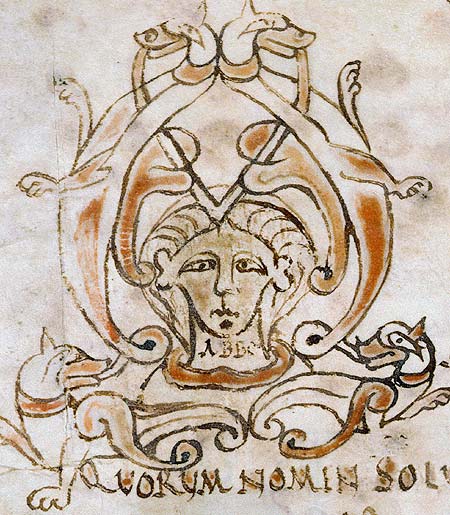 ABBO
QVORVM NOMIN SOLV